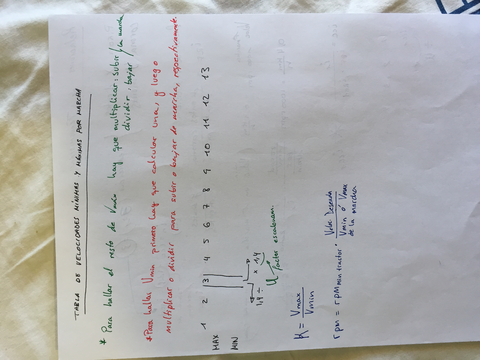 TABLA DE VELOCIDADES MÍNIMAS Y MÁXIMAS POR MARCHA
* Para hallar el resto de Vmáx hay que multiplicar: subir / la marcha
dividir: bajar /
* Para hallar Vmin primero hay que calcular una, y luego
multiplicar o dividir para subir o bajar de marcha, respectivamente.
1 2 3 4 5 6 7 8 9 10 11 12 13
MAX
MIN
1,4 ÷ x 1,4
factor escalonam.
K = Vmax / Vmin
rpm = rpm min tractor · Veloc Deseada / Vmin ó Vmax
de la marcha